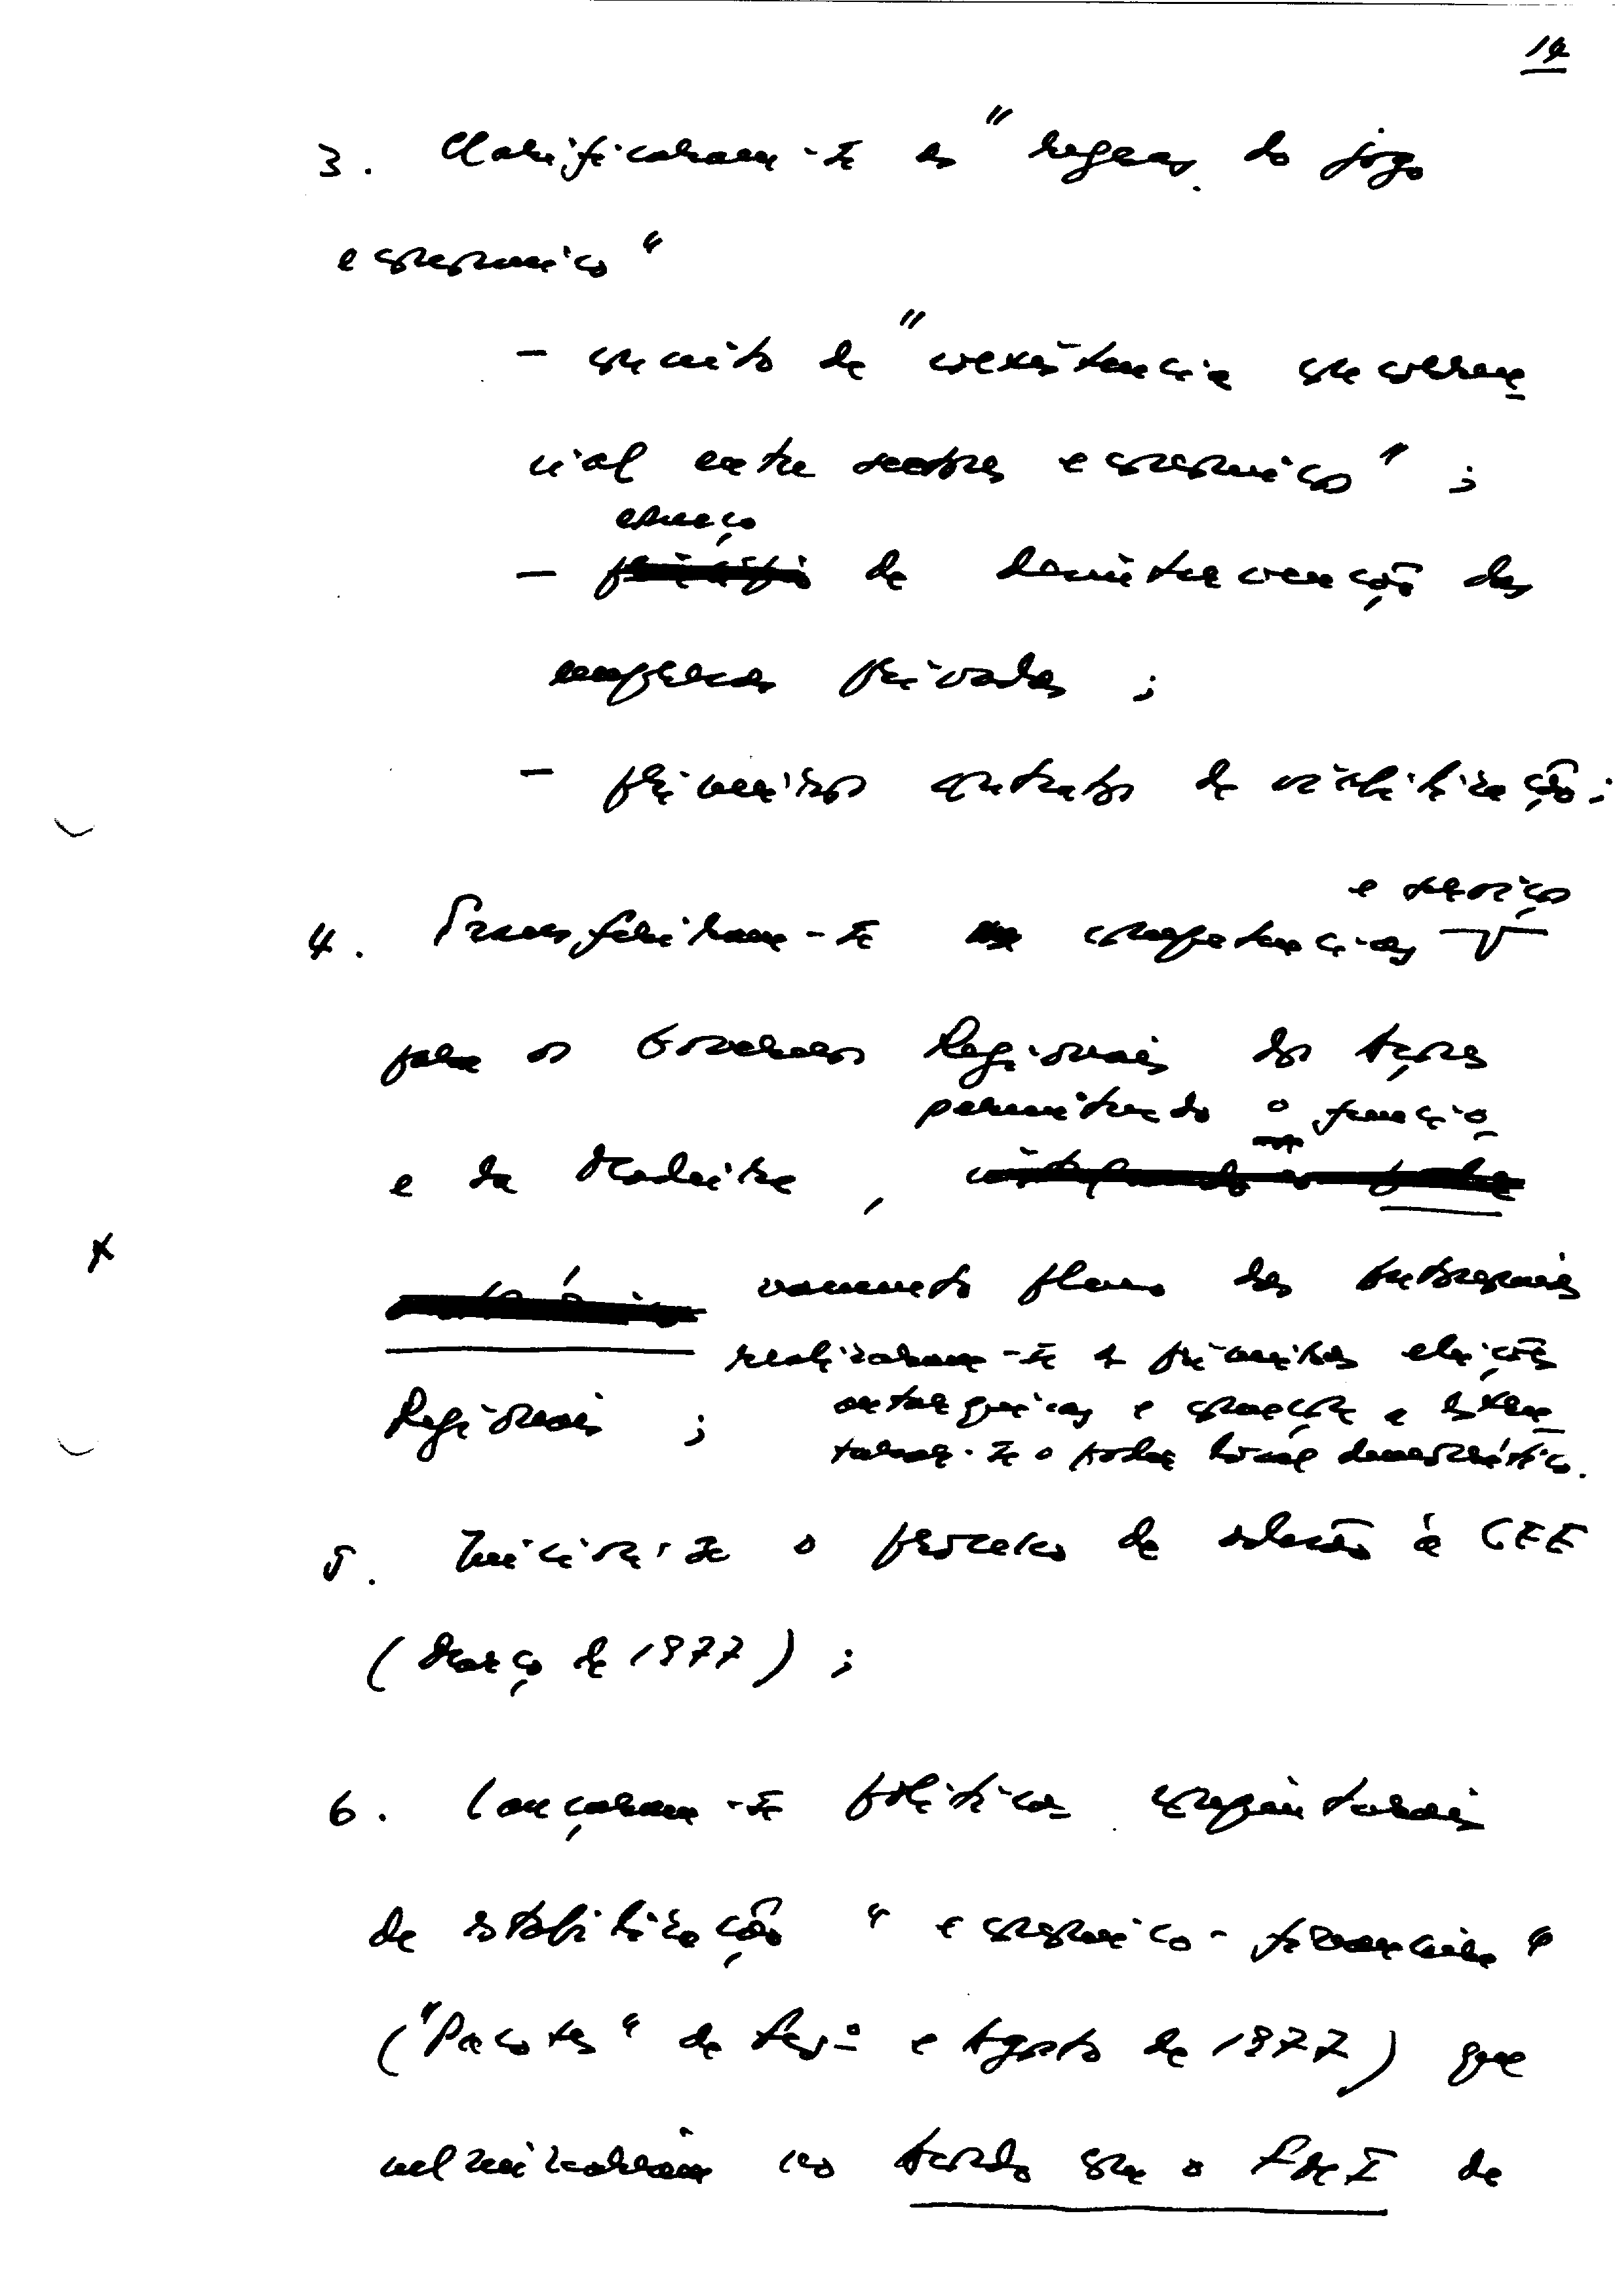 14
3. Clarificaram-se as "regras do jogo
económico"
- conceito de "coexistência concorren
cial entre sectores económicos";
esforço
- de desintervenção das
empresas privadas;
- primeiros contratos de viabilização;
e serviços
4. Transferiram-se competências
para os Governos Regionais dos Açores
permitindo o funcio
e da Madeira,
namento pleno das Autonomias
realizaram-se as primeiras eleições
Regionais;
autárquicas e começou a estru
turar-se o poder local democrático.
5. Iniciou-se o processo de adesão à CEE
(Março de 1977);
6. Lançaram-se políticas conjunturais
de estabilização "económico-financeira"
("Pacotes" de Fevº e Agosto de 1977) que
culminaram no Acordo com o FMI de